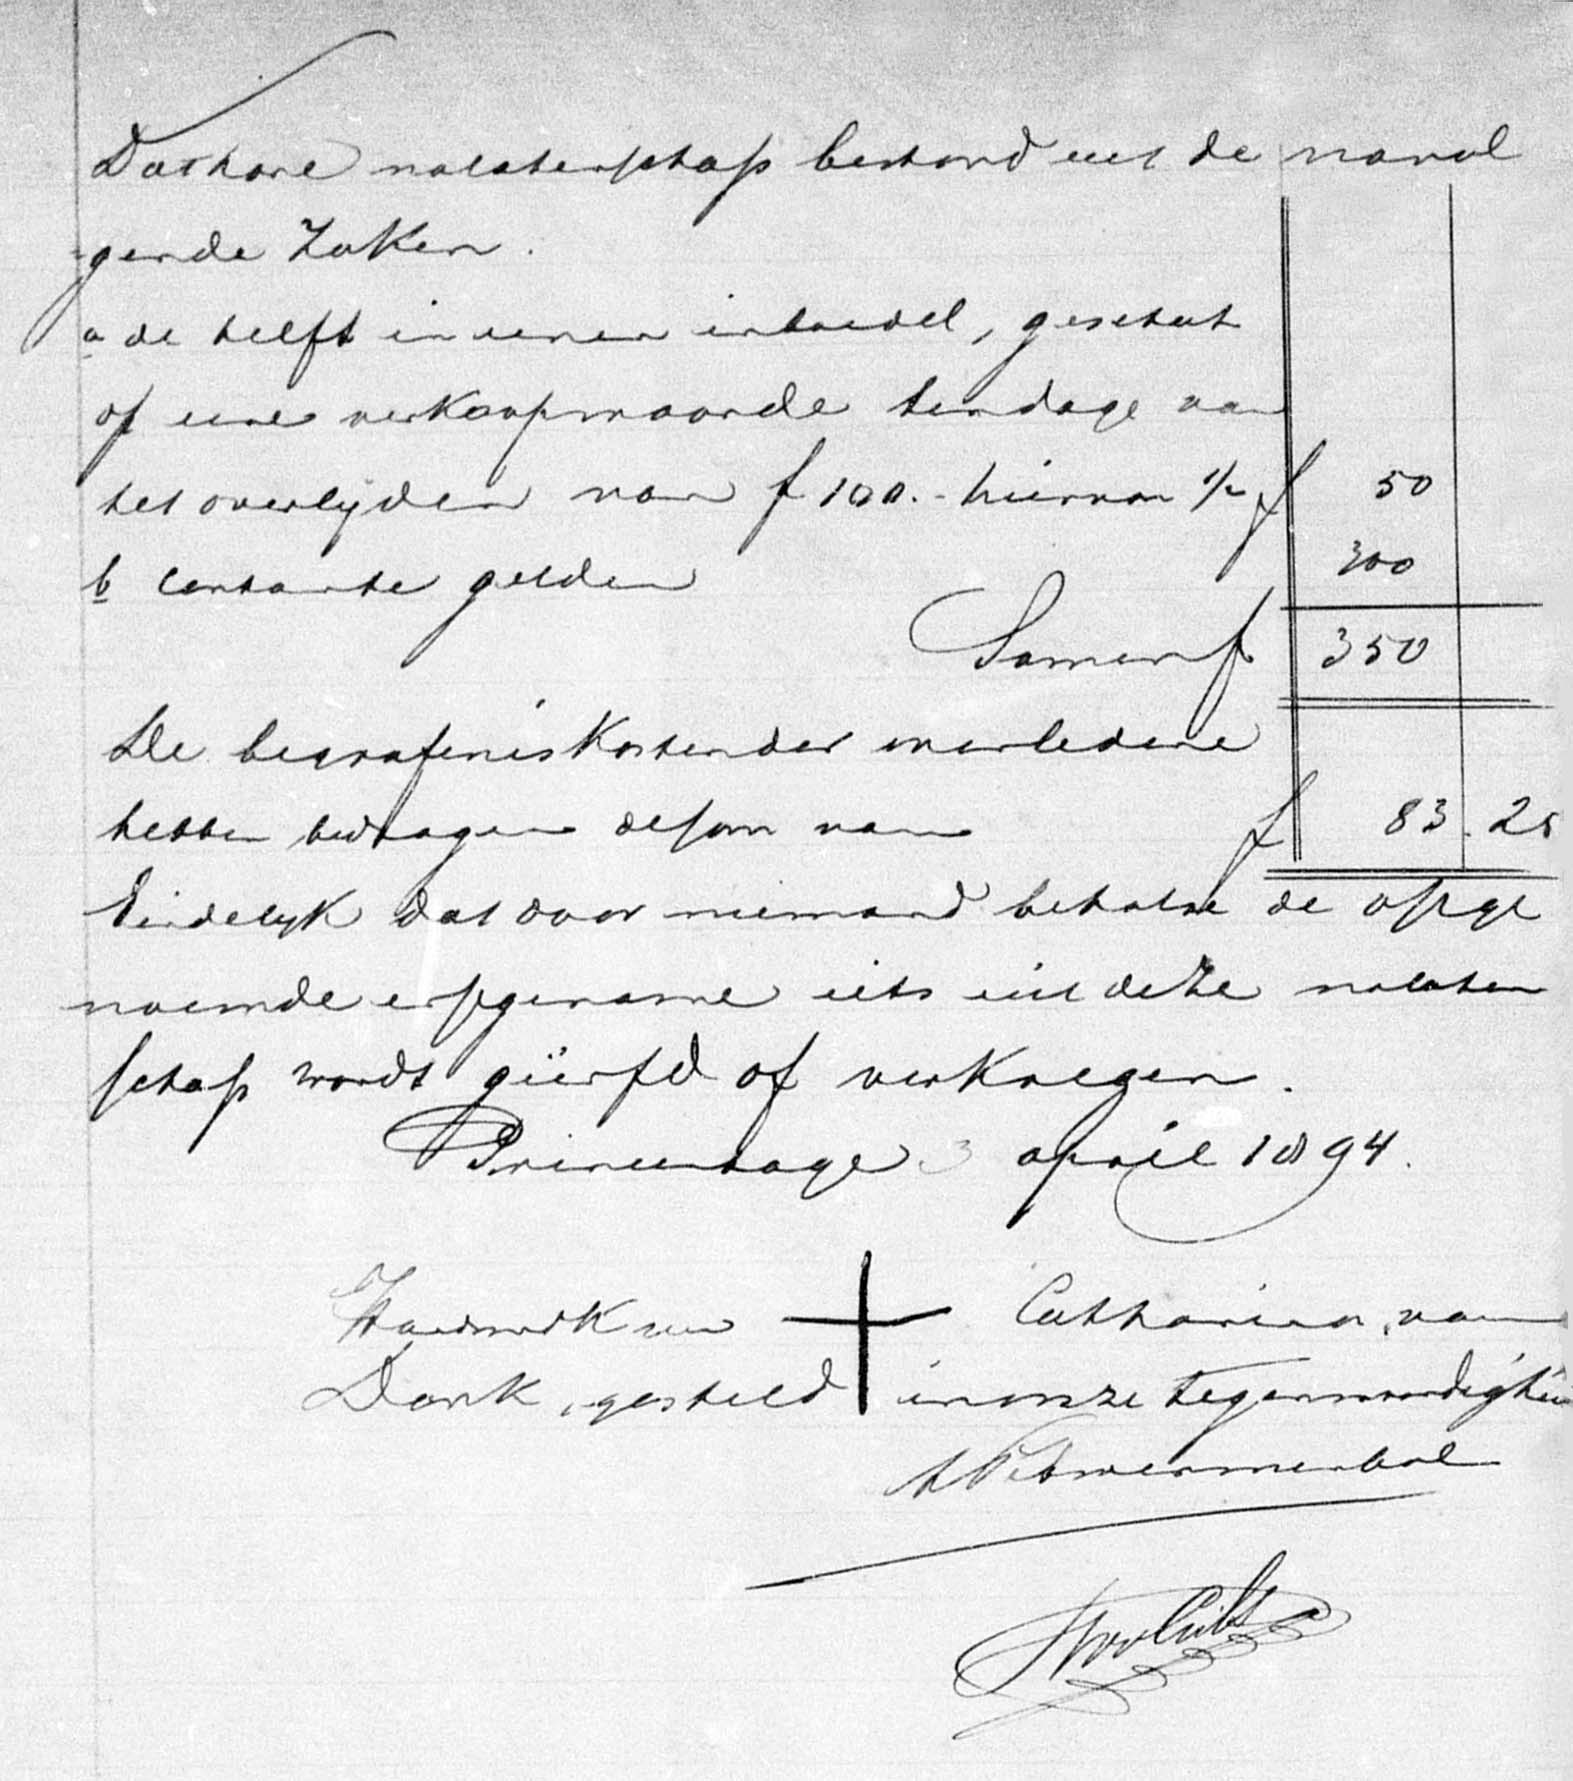 Dat hare nalatenschap bestond uit de naval
gende zaken.
a de helft in eenen inboedel, geschat
op eene verkoopwaarde ten dage van
het overlijden van f 100.- hiervan 1/2 f 50
b contante gelden 300
Samen f 350
De begrafeniskosten der overledene
hebben bedragen de som van f 83.25
Eindelyk dat door niemand behalve de opge
noemde erfgename iets uit deze nalaten
schap wordt geërfd of verkregen.
Princenhage 3 april 1894.
Handmerk van + Catharina van
Donk, gesteld in onze tegenwoordighei